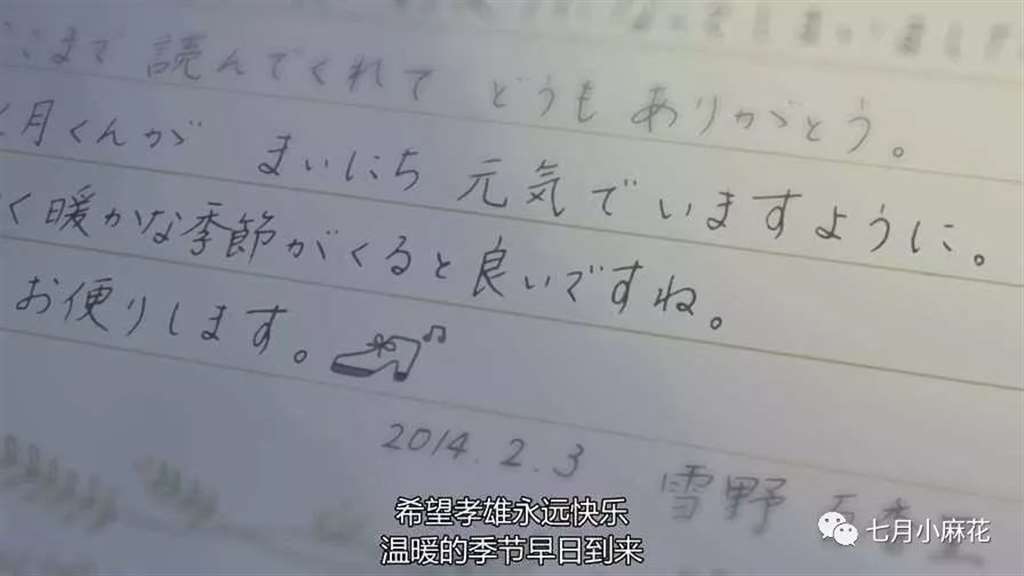 まで 読んでくれて どうも ありがとう。
月くんが まいにち 元気でいますように。
く暖かな季節がくると良いですね。
お便りします。
2014.2.3 雪野
希望孝雄永远快乐
温暖的季节早日到来
七月小麻花